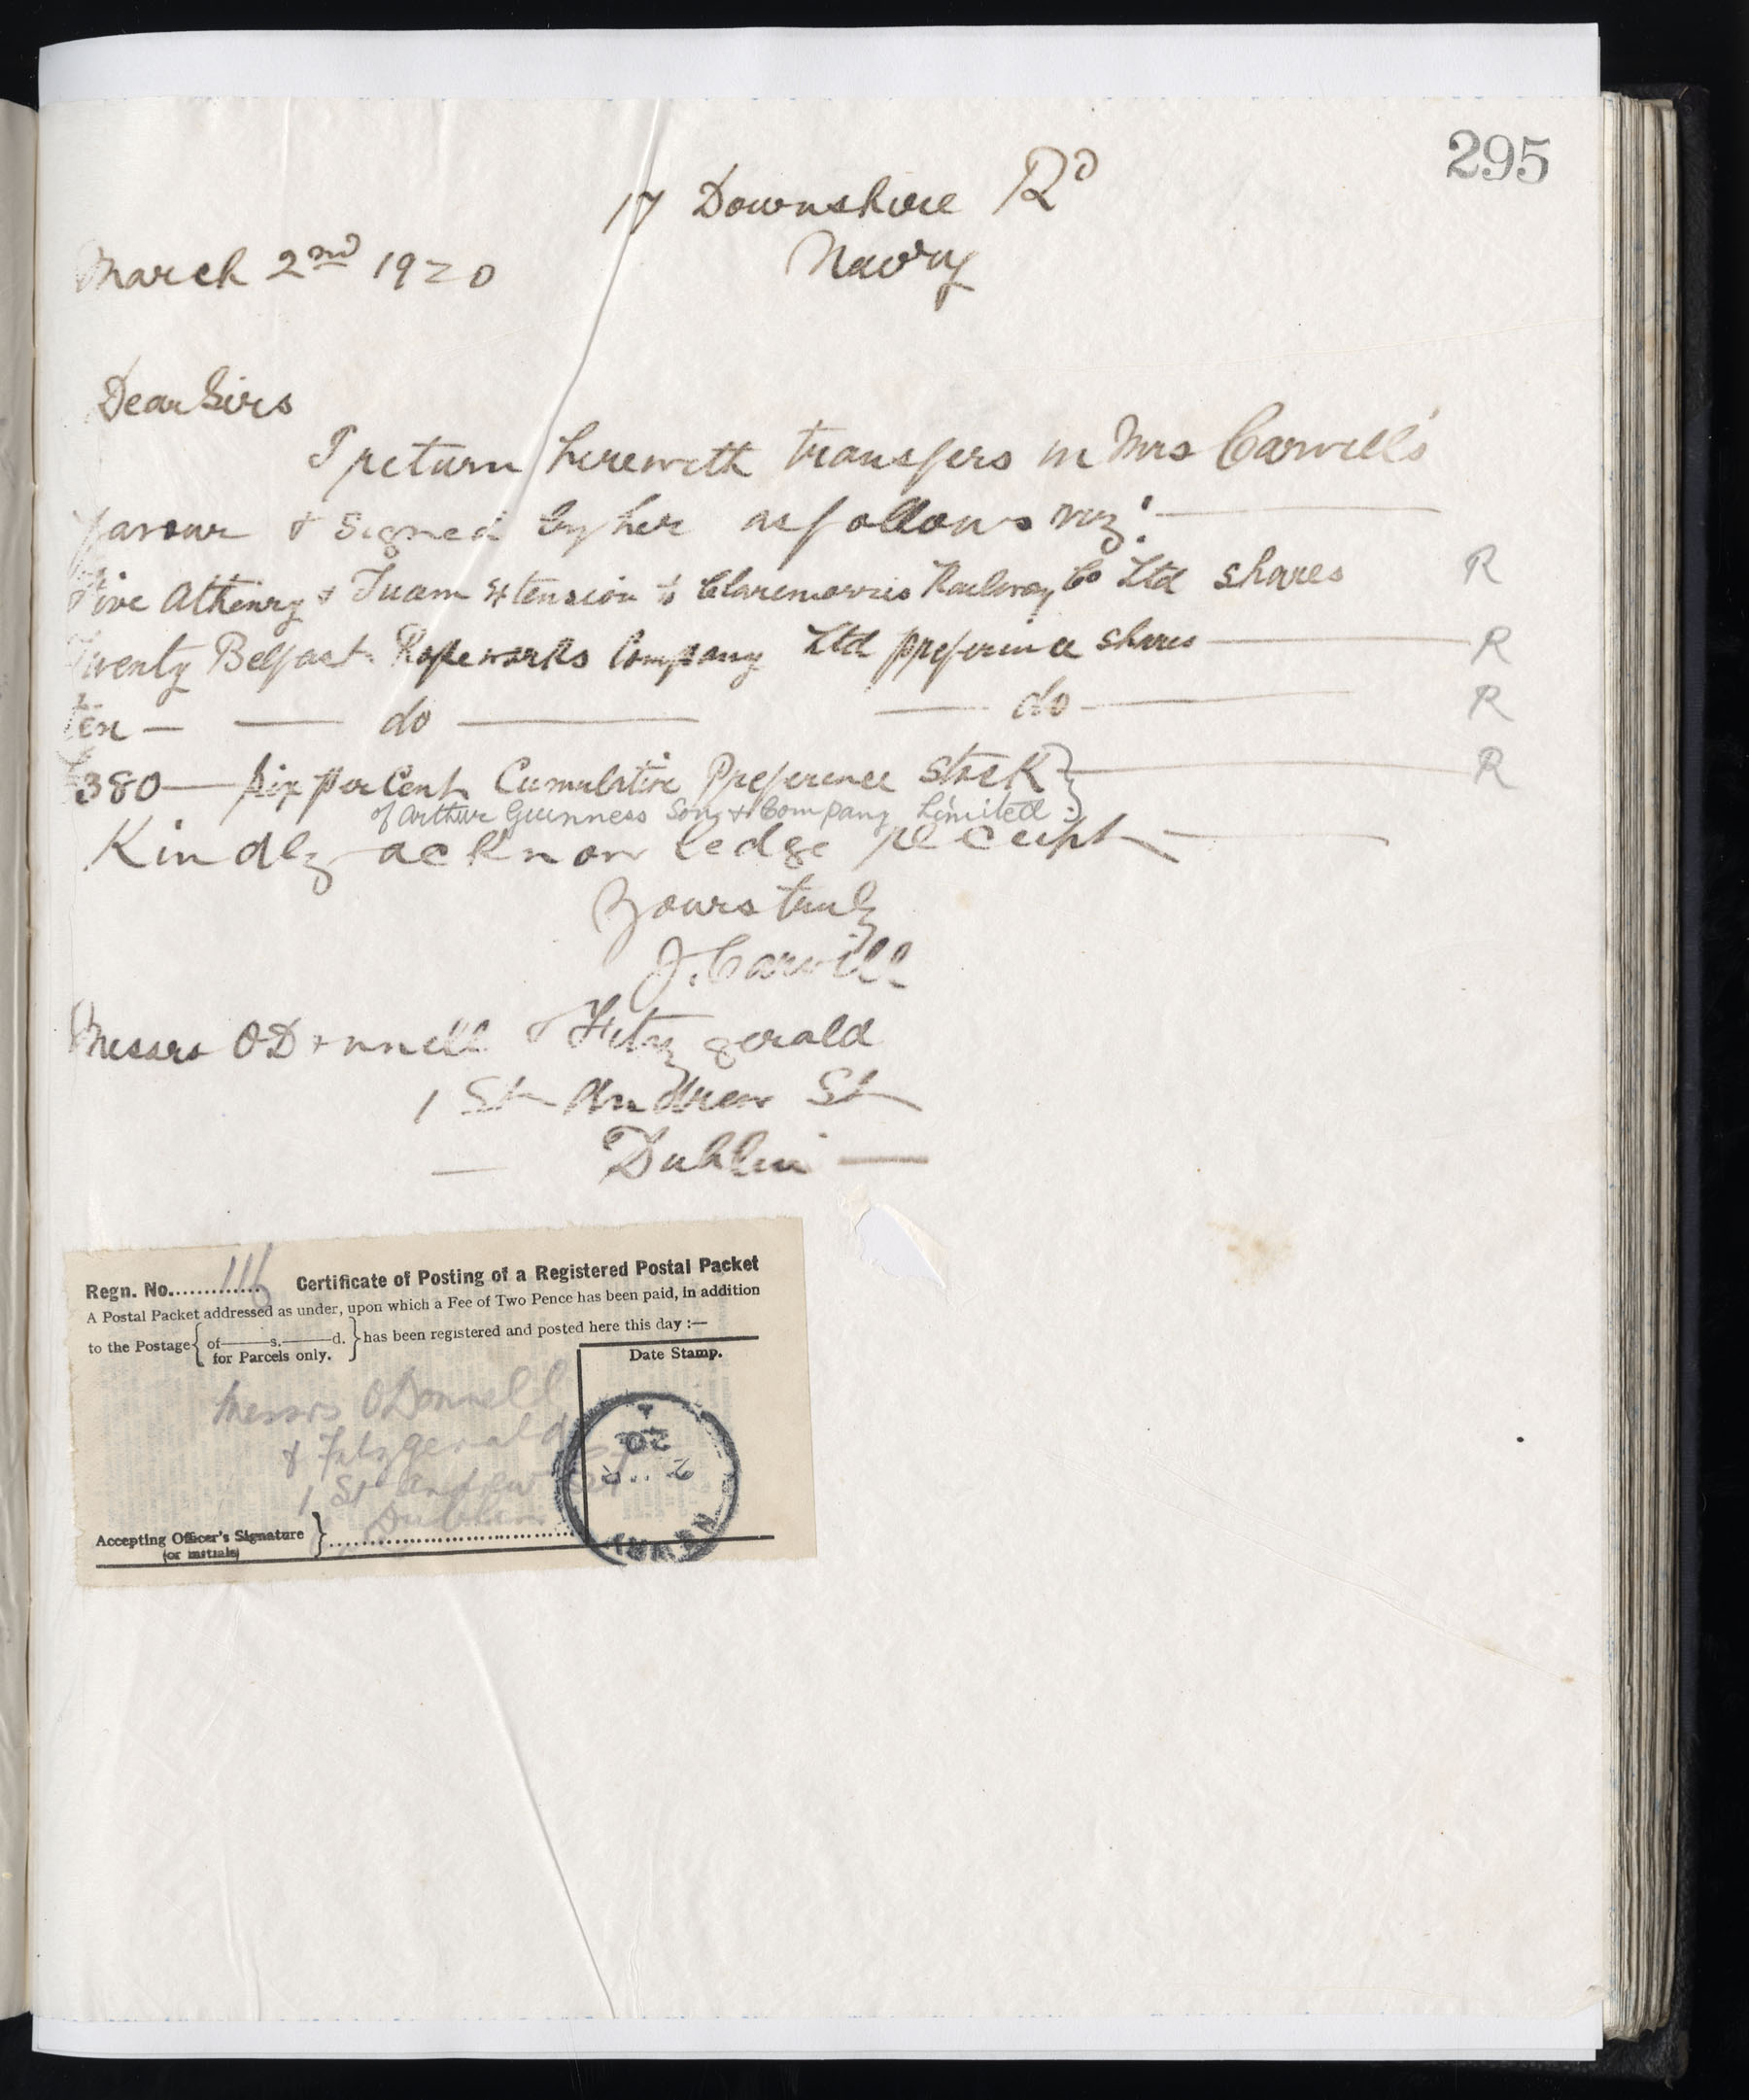 295
17 Downshire Rd
Newry
March 2nd 1920
Dear Sirs
I return herewith transfers in Mrs Carvill's
favour & signed by her as follows viz:
Five Athenry & Tuam Extension to Claremorris Railway Co Ltd shares R
Twenty Belfast Ropeworks Company Ltd preference shares R
ten — do — do — R
£380 — six per Cent Cumulative Preference Stock } R
of Arthur Guinness Son & Company Limited
Kindly acknowledge receipt
Yours truly
J. Carvill
Messrs O'Donnell & Fitzgerald
1 St Andrew St
Dublin
Regn. No. 116 Certificate of Posting of a Registered Postal Packet
A Postal Packet addressed as under, upon which a Fee of Two Pence has been paid, in addition
to the Postage { of——s.——d. } has been registered and posted here this day :—
for Parcels only.
Date Stamp.
Messrs O'Donnell
& Fitzgerald
1 St Andrew St
Dublin
Accepting Officer's Signature }
(or initials)
2 MR
20